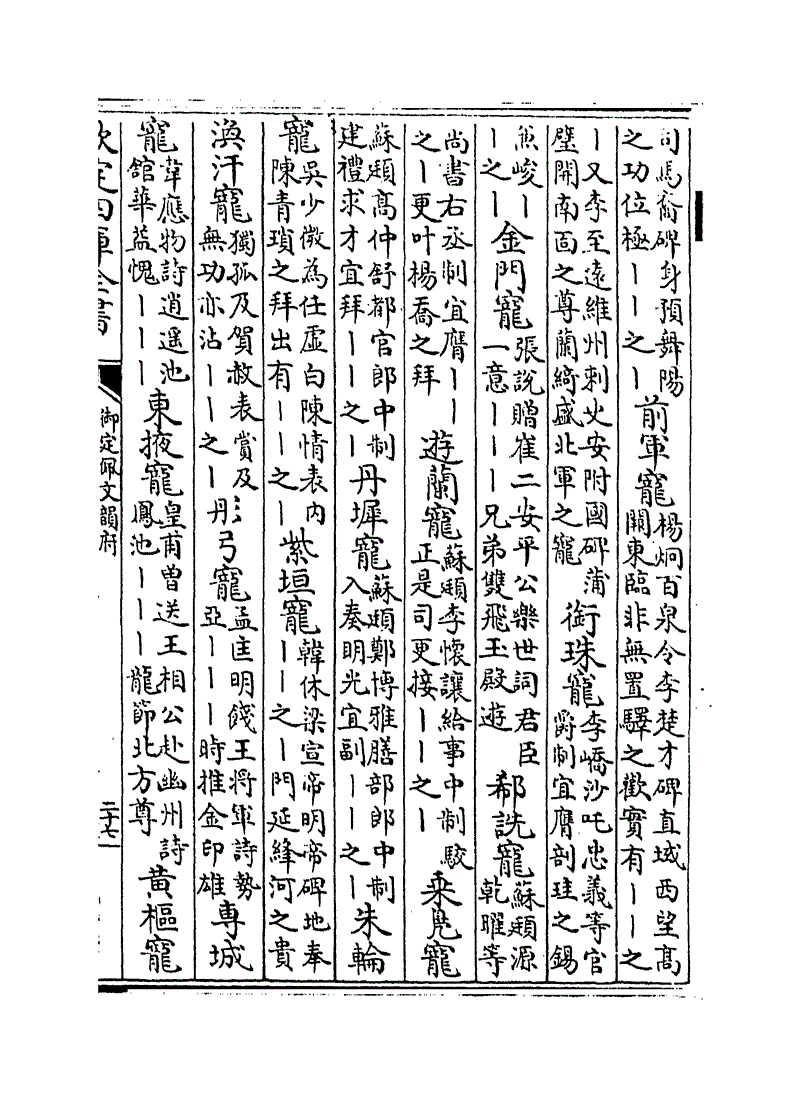 司馬裔碑身預舞陽
之功位極——之—
前軍寵
楊炯百泉令李楚才碑直城西望髙
關東臨非無置驛之歡實有——之
—又李至遠維州刺史安附國碑蒲
壁開南面之尊蘭綺盛北軍之寵
銜珠寵
李嶠沙吒忠義等官
爵制宜膺剖珪之錫
峻—
—之—
金門寵
張說贈崔二安平公樂世詞君臣
一意———兄弟雙飛玉殿遊
郗詵寵
蘇頲源
乾曜等
尚書右丞制宜膺——
之—更叶楊喬之拜
遊蘭寵
蘇頲李懷讓給事中制駮
正是司更接——之—
乗鳬寵
蘇頲髙仲舒都官郎中制
建禮求才宜拜——之—
丹墀寵
蘇頲鄭博雅膳部郎中制
入奏明光宜副——之—
朱輪
寵
吳少微為任虛白陳情表内
陳青瑣之拜出有——之—
紫垣寵
韓休梁宣帝明帝碑地奉
——之—門延絳河之貴
渙汗寵
獨孤及賀赦表賞及
無功亦沾——之—
彤弓寵
孟匡明餞王將軍詩勢
亞———時推金印雄
專城
寵
韋應物詩逍遥池
館華益愧———
東掖寵
皇甫曾送王相公赴幽州詩
鳳池———龍節北方尊
黄樞寵
欽定四庫全書
御定佩文韻府
二十七